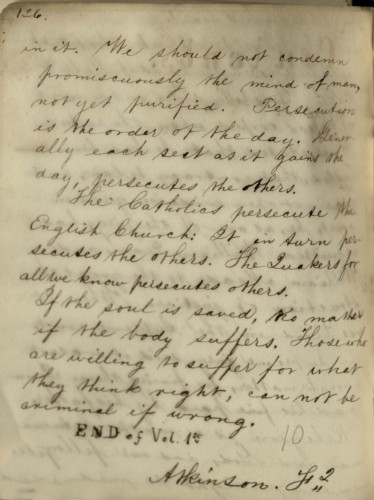 126.
in it. We should not condemn
promiscuously the mind of man,
not yet purified. Persecution
is the order of the day. Gener-
ally each sect as it gains the
day, persecutes the others.
The Catholics persecute the
English Church: It in turn per-
secutes the others. The Quakers for
all we know persecutes others.
If the soul is saved, no matter
if the body suffers. Those who
are willing to suffer for what
they think right, can not be
criminal if wrong.
END of Vol. 1st
10
Atkinson.